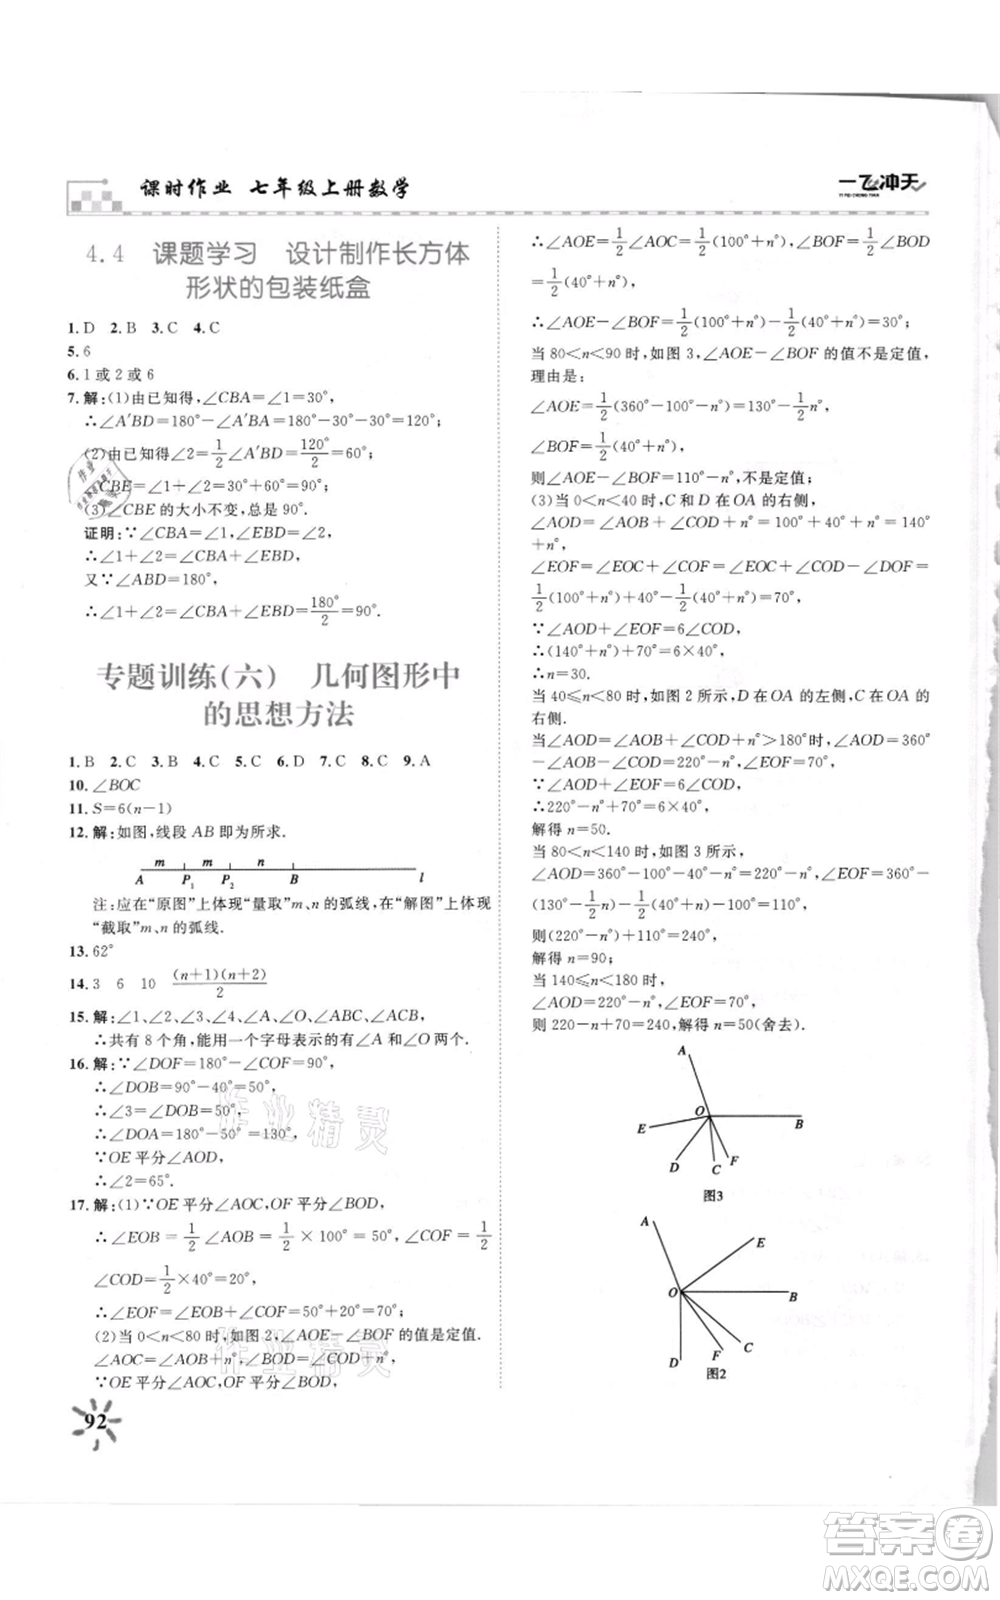 课时作业 七年级上册数学
一飞冲天
YI FEI CHONG TIAN
4.4 课题学习 设计制作长方体
形状的包装纸盒
1.D 2.B 3.C 4.C
5.6
6.1或2或6
7.解:(1)由已知得,∠CBA=∠1=30°,
∴∠A′BD=180°-∠A′BA=180°-30°-30°=120°;
(2)由已知得∠2=1/2∠A′BD=120°/2=60°,
∠CBE=∠1+∠2=30°+60°=90°;
(3)∠CBE的大小不变,总是90°.
证明:∵∠CBA=∠1,∠EBD=∠2,
∴∠1+∠2=∠CBA+∠EBD,
又∵∠ABD=180°,
∴∠1+∠2=∠CBA+∠EBD=180°/2=90°.
专题训练(六) 几何图形中
的思想方法
1.B 2.C 3.C 4.C 5.C 6.D 7.C 8.C 9.A
10.∠BOC
11.S=6(n-1)
12.解:如图,线段AB即为所求.
m m n
A P₁ P₂ B l
注:应在“原图”上体现“量取”m、n的弧线,在“解图”上体现
“截取”m、n的弧线.
13.62°
14.3 6 10 (n+1)(n+2)/2
15.解:∠1、∠2、∠3、∠4、∠A、∠O、∠ABC、∠ACB,
∴共有8个角,能用一个字母表示的有∠A和∠O共两个.
16.解:∵∠DOF=180°-∠COF=90°,
∴∠DOB=90°-40°=50°,
∴∠3=∠DOB=50°;
∴∠DOA=180°-50°=130°,
∵OE平分∠AOD,
∴∠2=65°.
17.解:(1)∵OE平分∠AOC,OF平分∠BOD,
∴∠EOB=1/2∠AOB=1/2×100°=50°,∠COF=1/2
∠COD=1/2×40°=20°,
∴∠EOF=∠EOB+∠COF=50°+20°=70°;
(2)当0<n<80时,如图2,∠AOE-∠BOF的值是定值.
∵∠AOC=∠AOB+n°,∠BOD=∠COD+n°,
∵OE平分∠AOC,OF平分∠BOD,
92
∴∠AOE=1/2∠AOC=1/2(100°+n°),∠BOF=1/2∠BOD
=1/2(40°+n°),
∴∠AOE-∠BOF=1/2(100°+n°)-1/2(40°+n°)=30°;
当80<n<90时,如图3,∠AOE-∠BOF的值不是定值,
理由是:
∠AOE=1/2(360°-100°-n°)=130°-1/2n°,
∠BOF=1/2(40°+n°),
则∠AOE-∠BOF=110°-n°,不是定值;
(3)当0<n<40时,C和D在OA的右侧,
∠AOD=∠AOB+∠COD+n°=100°+40°+n°=140°
+n°,
∠EOF=∠EOC+∠COF=∠EOC+∠DOC-∠DOF=
1/2(100°+n°)+40°-1/2(40°+n°)=70°,
∵∠AOD+∠EOF=6∠COD,
∴(140°+n°)+70°=6×40°,
∴n=30.
当40≤n<80时,如图2所示,D在OA的左侧,C在OA的
右侧.
当∠AOD=∠AOB+∠COD+n°>180°时,∠AOD=360°
-∠AOB-∠COD-n°=220°-n°,∠EOF=70°,
∵∠AOD+∠EOF=6∠COD,
∴220°-n°+70°=6×40°,
解得n=50.
当80<n<140时,如图3所示,
∠AOD=360°-100°-40°-n°=220°-n°,∠EOF=360°
-(130°-1/2n)-1/2(40°+n)-100°=110°,
则(220°-n°)+110°=240°,
解得n=90;
当140≤n<180时,
∠AOD=220°-n°,∠EOF=70°,
则220-n°+70=240,解得n=50(舍去).
A
O
E B
D C F
图3
A
E
O B
C
D F
图2
作业精灵
作业精灵
答案卷